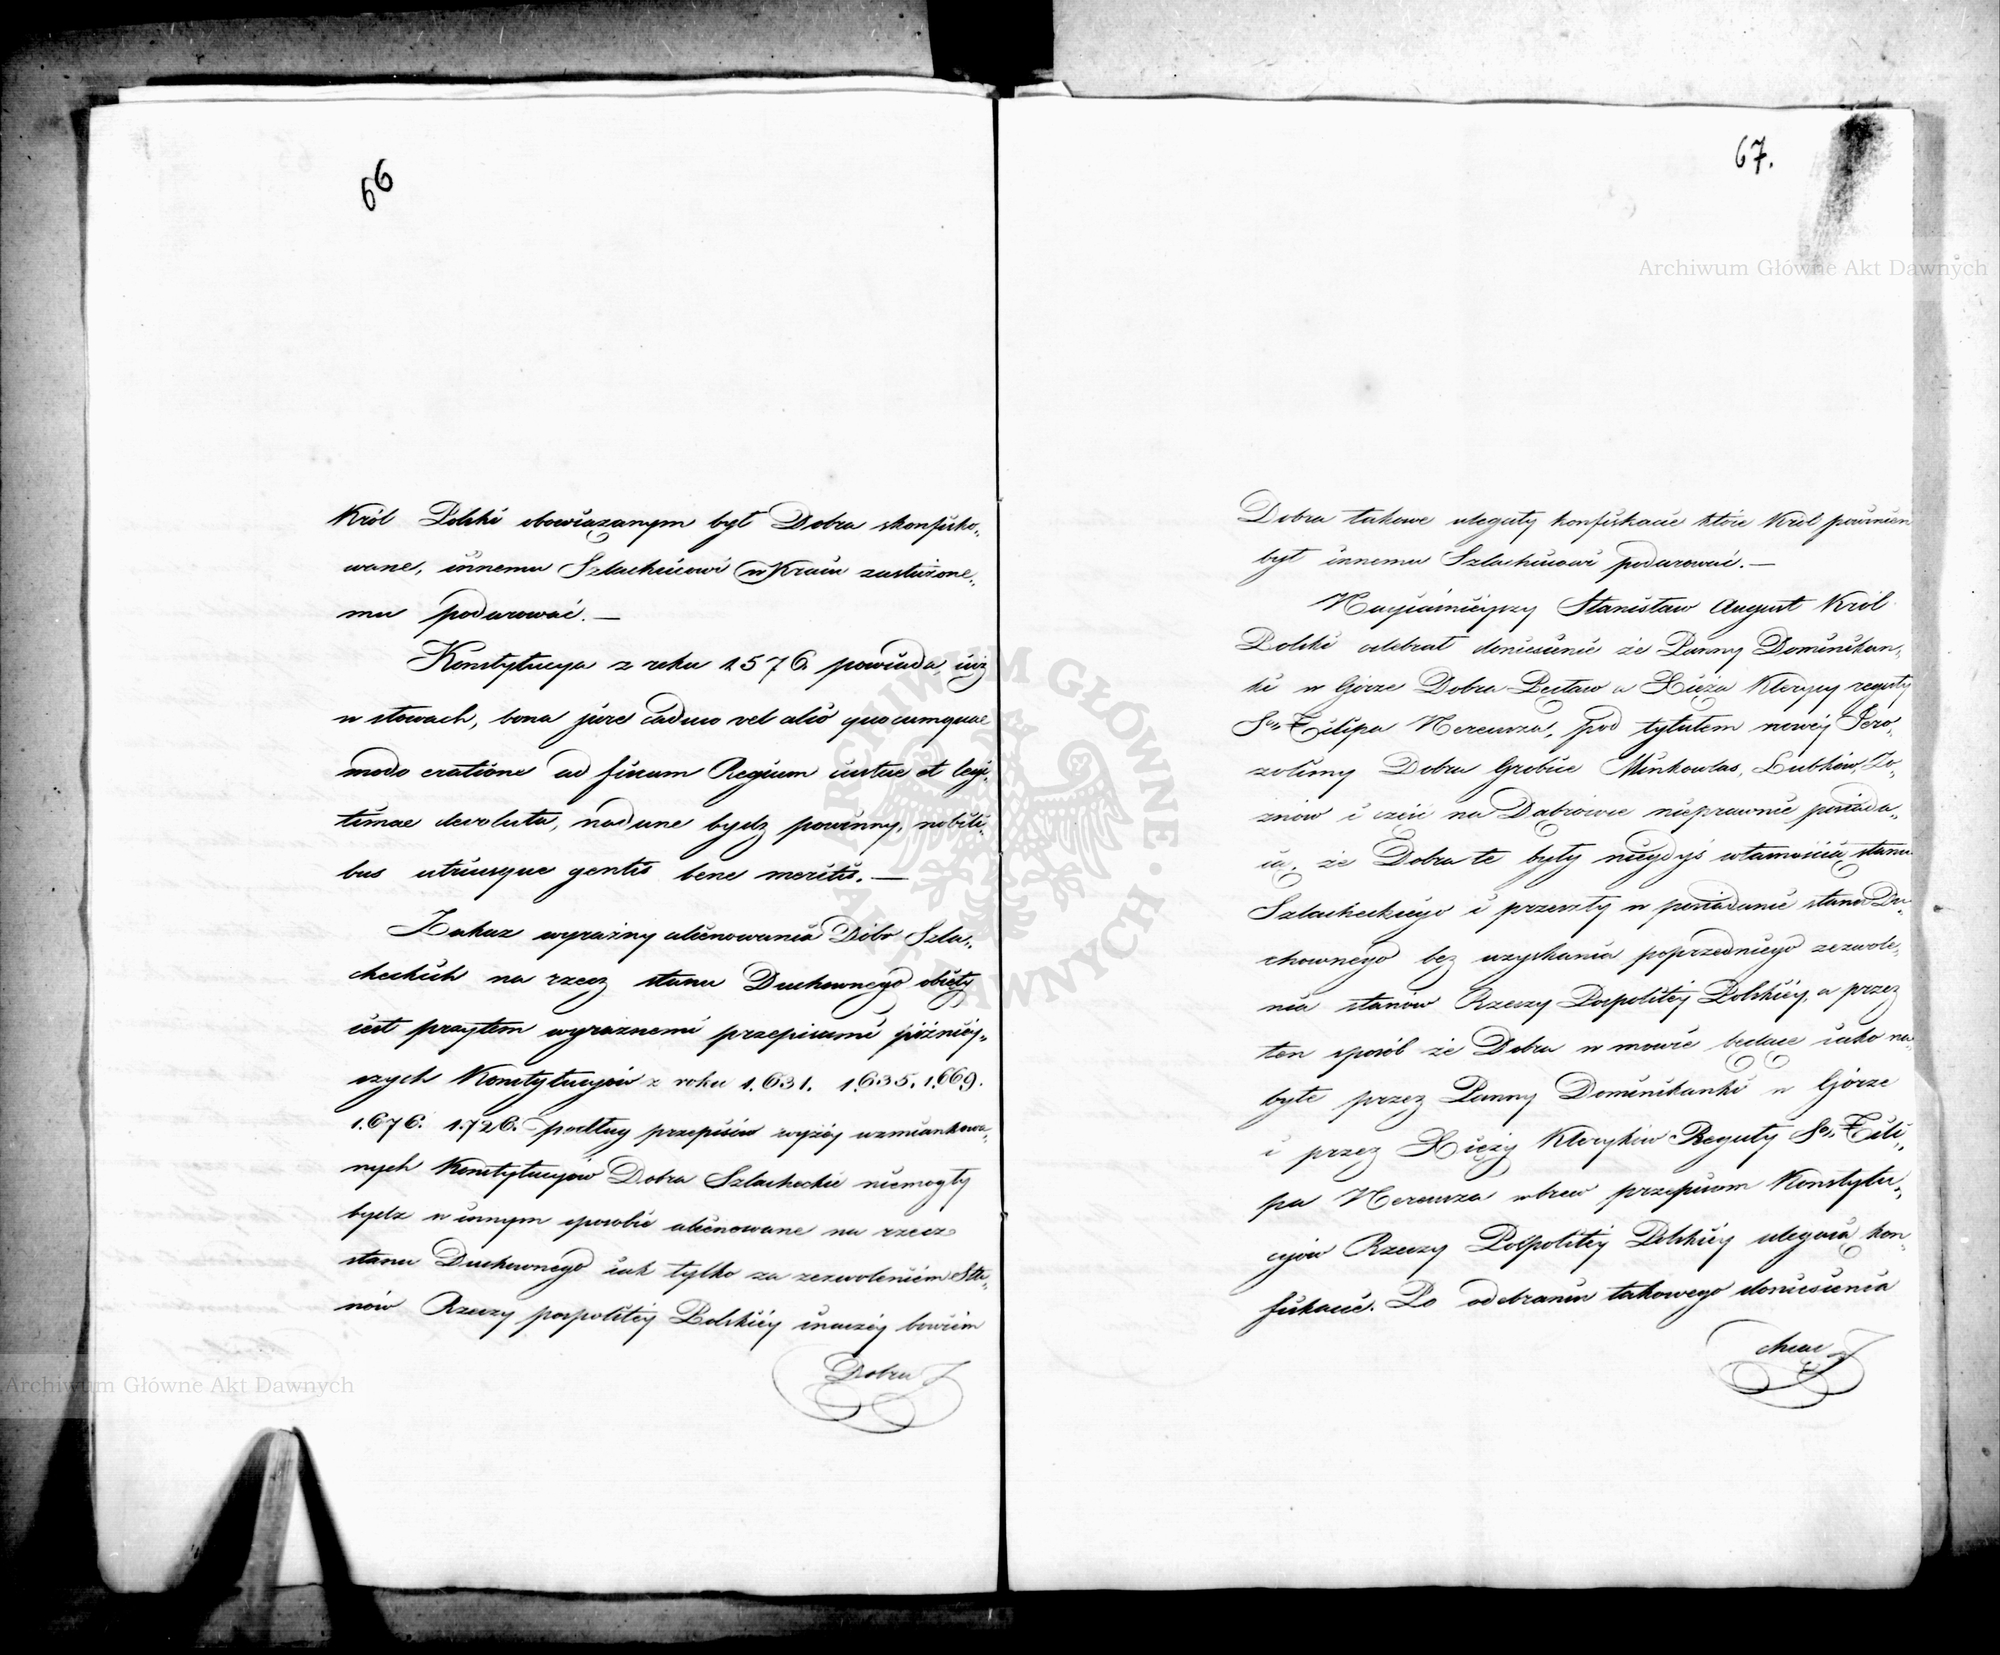 66
Król Polski obowiązanym był Dobra skonfisko„
wane, innemu Szlachcicowi w Kraiu zasłużone„
mu podarować. —
Konstytucya z roku 1576. powiada, iuż
w słowach, bona jure caduco vel alio quocumque
modo eratione ad fiscum Regium iustae et legi„
timae devoluta, nadane bydz powinny, nobili„
bus utriusque gentis bene meritis. —
Zakaz wyraźny alienowania Dóbr Szla„
checkich na rzecz stanu Duchownego obięty
iest przytem wyraźnemi przepisami późniey„
szych Konstytucyiów z roku 1631. 1635. 1669.
1676. 1726. podług przepisów wyżéy wzmiankowa„
nych Konstytucyiów Dobra Szlacheckie niemogły
bydz w innym sposobie alienowane na rzecz
stanu Duchownego iak tylko za zezwoleniem Sta„
nów Rzeczy pospolitéy Polskiéy inaczéy bowiem
Dobra
67.
Dobra takowe uległy konfiskacie które Król powinien
był innemu Szlachcicowi podarować. —
Nayiaśnieyszy Stanisław August Król
Polski odebrał doniesienie że Panny Dominikan„
ki w Górze Dobra a Xięża Klerycy reguły
Sgo Filipa Nereusza, pod tytułem nowéy Jero„
zolimy Dobra Grobice Lubków,
i część na Dąbrowce nieprawnie posiada„
ią, że Dobra te były niegdyś własnością stanu
Szlacheckiego i przeszły w posiadanie stanu Du„
chownego bez uzyskania poprzedniego zezwole„
nia stanów Rzeczy Pospolitéy Polskiéy, a przez
ten sposób że Dobra w mowie będące iako na„
byte przez Panny Dominikanki w Górze
i przez Xięży Kleryków Reguły Sgo Fili„
pa Nereusza wbrew przepisom Konstytu„
cyiów Rzeczy Pospolitéy Polskiéy ulegaią kon„
fiskacie. Po odebraniu takowego doniesienia
chciał
ARCHIWUM GŁÓWNE AKT DAWNYCH
Archiwum Główne Akt Dawnych
Archiwum Główne Akt Dawnych